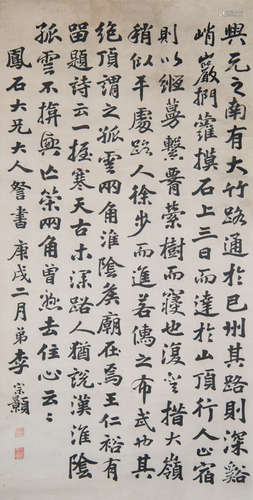 興元之南有大竹路通於巴州其路則深谿
峭巖捫蘿摸石上三日而達於山頂行人止宿
則以縆蔓繫腰縈樹而寢也復登措大嶺
稍似平處路人徐步而進若儒之布武也其
絕頂謂之孤雲兩角淮陰侯廟在焉王仁裕有
留題詩云一握寒天古木深路人猶說漢淮陰
孤雲不揜興亡策兩角曾懸去住心云〻
鳳石大兄大人詧書 庚戌二月弟李宗顥